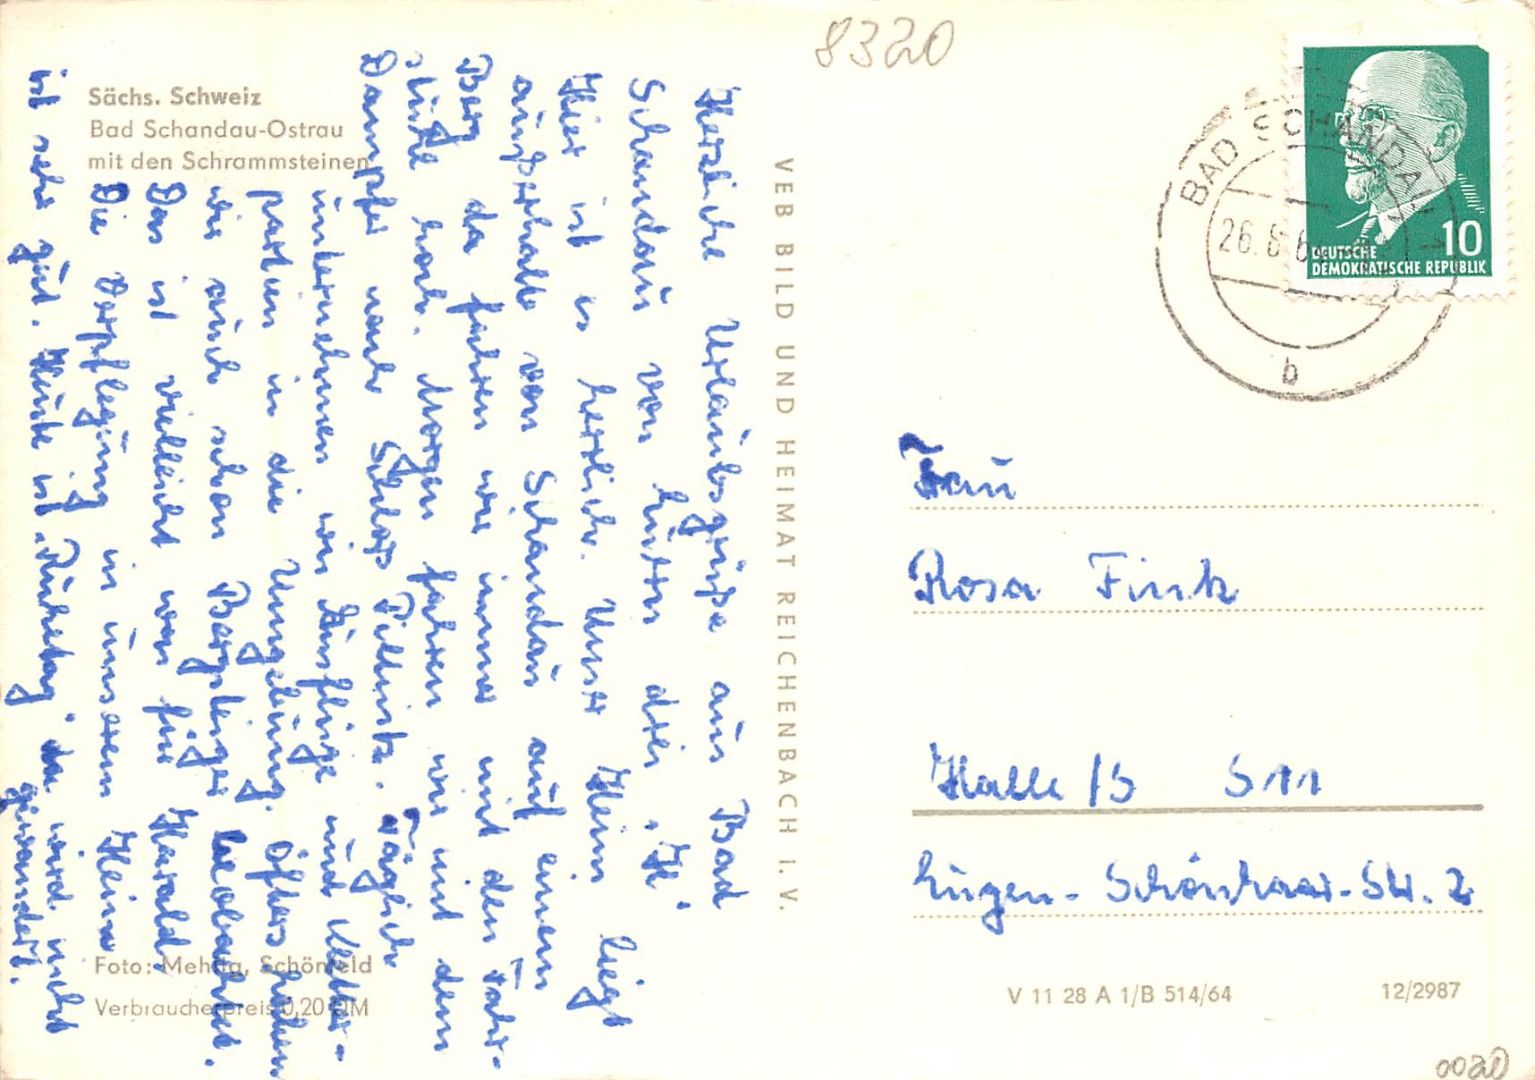 8320
Sächs. Schweiz
Bad Schandau-Ostrau
mit den Schrammsteinen
Herzliche Urlaubsgrüße aus Bad
Schandau von Euern drei „H".
Hier ist es herrlich. Unser Heim liegt
außerhalb von Schandau auf einem
Berg da fahren wir immer mit den Fahr-
stuhl hoch. Morgen fahren wir mit dem
Dampfer nach Schloß Pillnitz. Täglich
unternehmen wir Ausflüge und Kletter-
partien in die Umgebung. Öfters haben
wir auch schon Bergsteiger beobachtet.
Das ist vielleicht was für Harald.
Die Verpflegung in unserem Heim
ist sehr gut. Heute ist „Ruhetag" da wird nicht
gewandert.
Foto: Mehlig, Schönfeld
Verbraucherpreis 0,20 DM
VEB BILD UND HEIMAT REICHENBACH I. V.
BAD SCHANDAU 1
26.6.6
b
10
DEUTSCHE
DEMOKRATISCHE REPUBLIK
Frau
Rosa Fink
Halle/S S 11
Eugen-Schönhaar-Str. 2
V 11 28 A 1/B 514/64
12/2987
0020